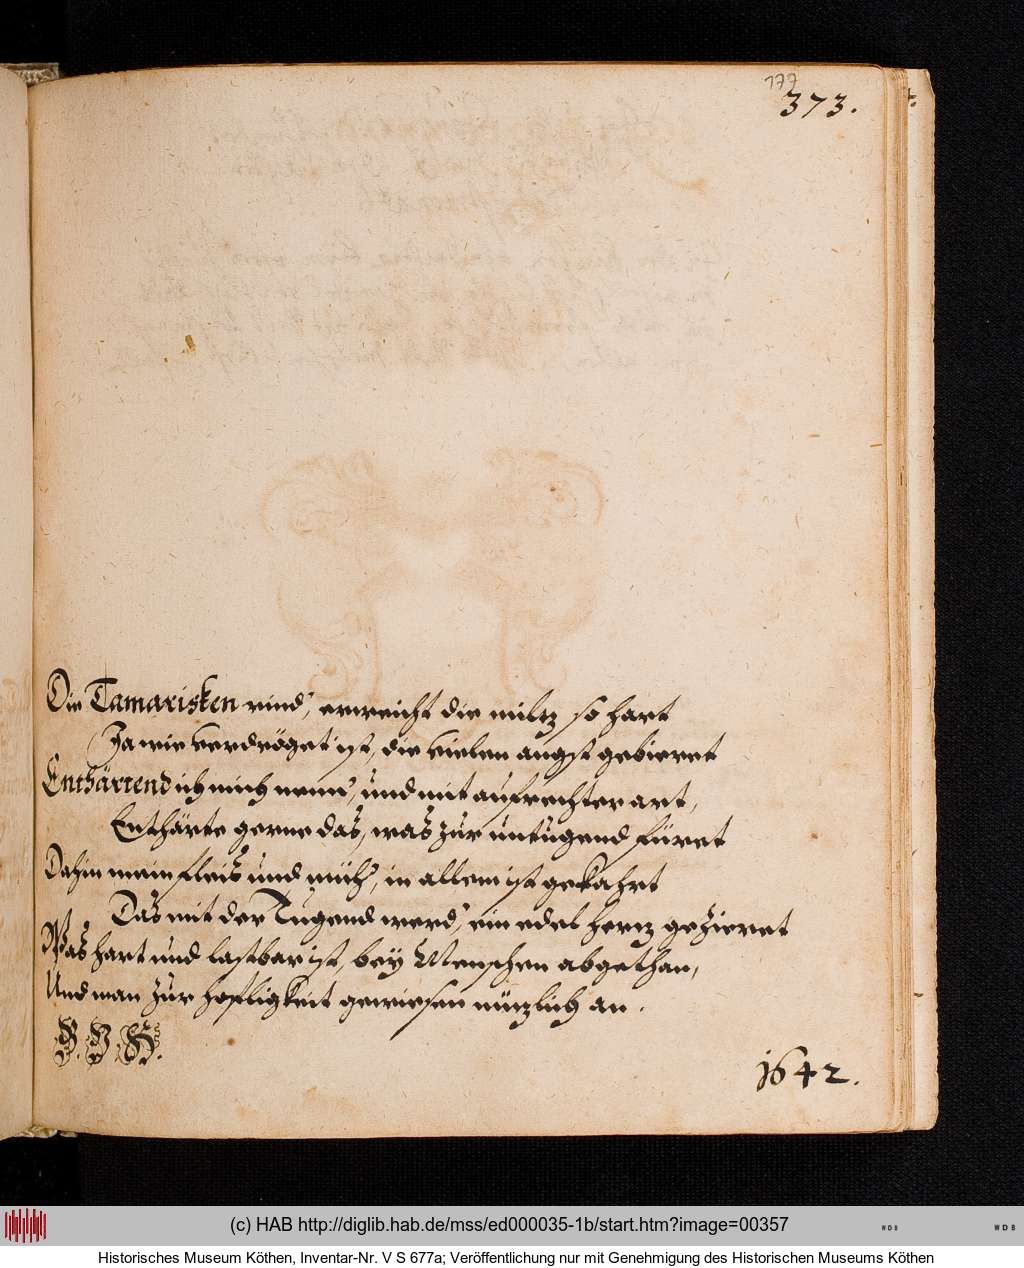 177
373.
Die Tamarisken rind', erweicht die miltz so hart
Ja wie verdröget ist, die vielen angst gebieret
Enthärtend ich mich nenn', und mit aufrechter art,
Enthärte gerne das, was zur untugend füret
Dahin mein fleis und müh', in allem ist gekahrt
Das mit der Tugend werd', ein edel hertz gezieret
Was hart und lastbar ist, bey Menschen abgethan,
Und man zur hofligkeit gewiesen nützlich an.
1642.
(c) HAB http://diglib.hab.de/mss/ed000035-1b/start.htm?image=00357
WDB
WDB
Historisches Museum Köthen, Inventar-Nr. V S 677a; Veröffentlichung nur mit Genehmigung des Historischen Museums Köthen